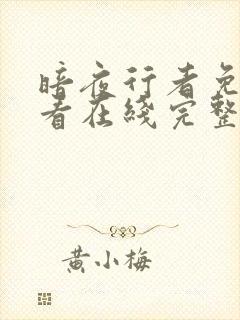 暗夜行者免
看在綫完整
黄小梅